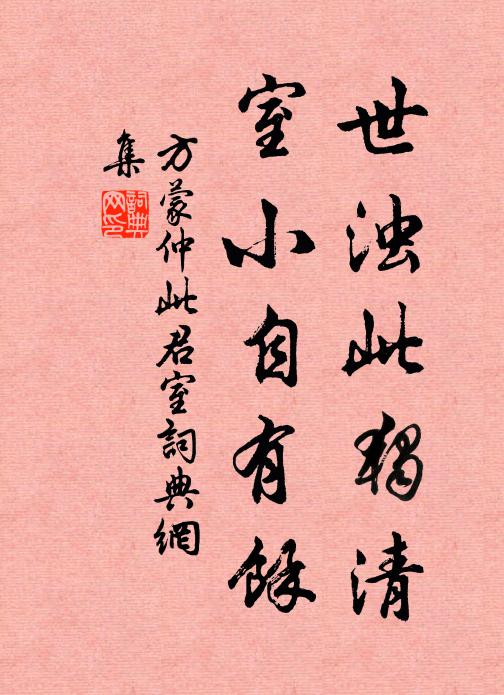 世浊此独清
室小自有餘
方蒙仲此君室詞典網
集
詞典
网印